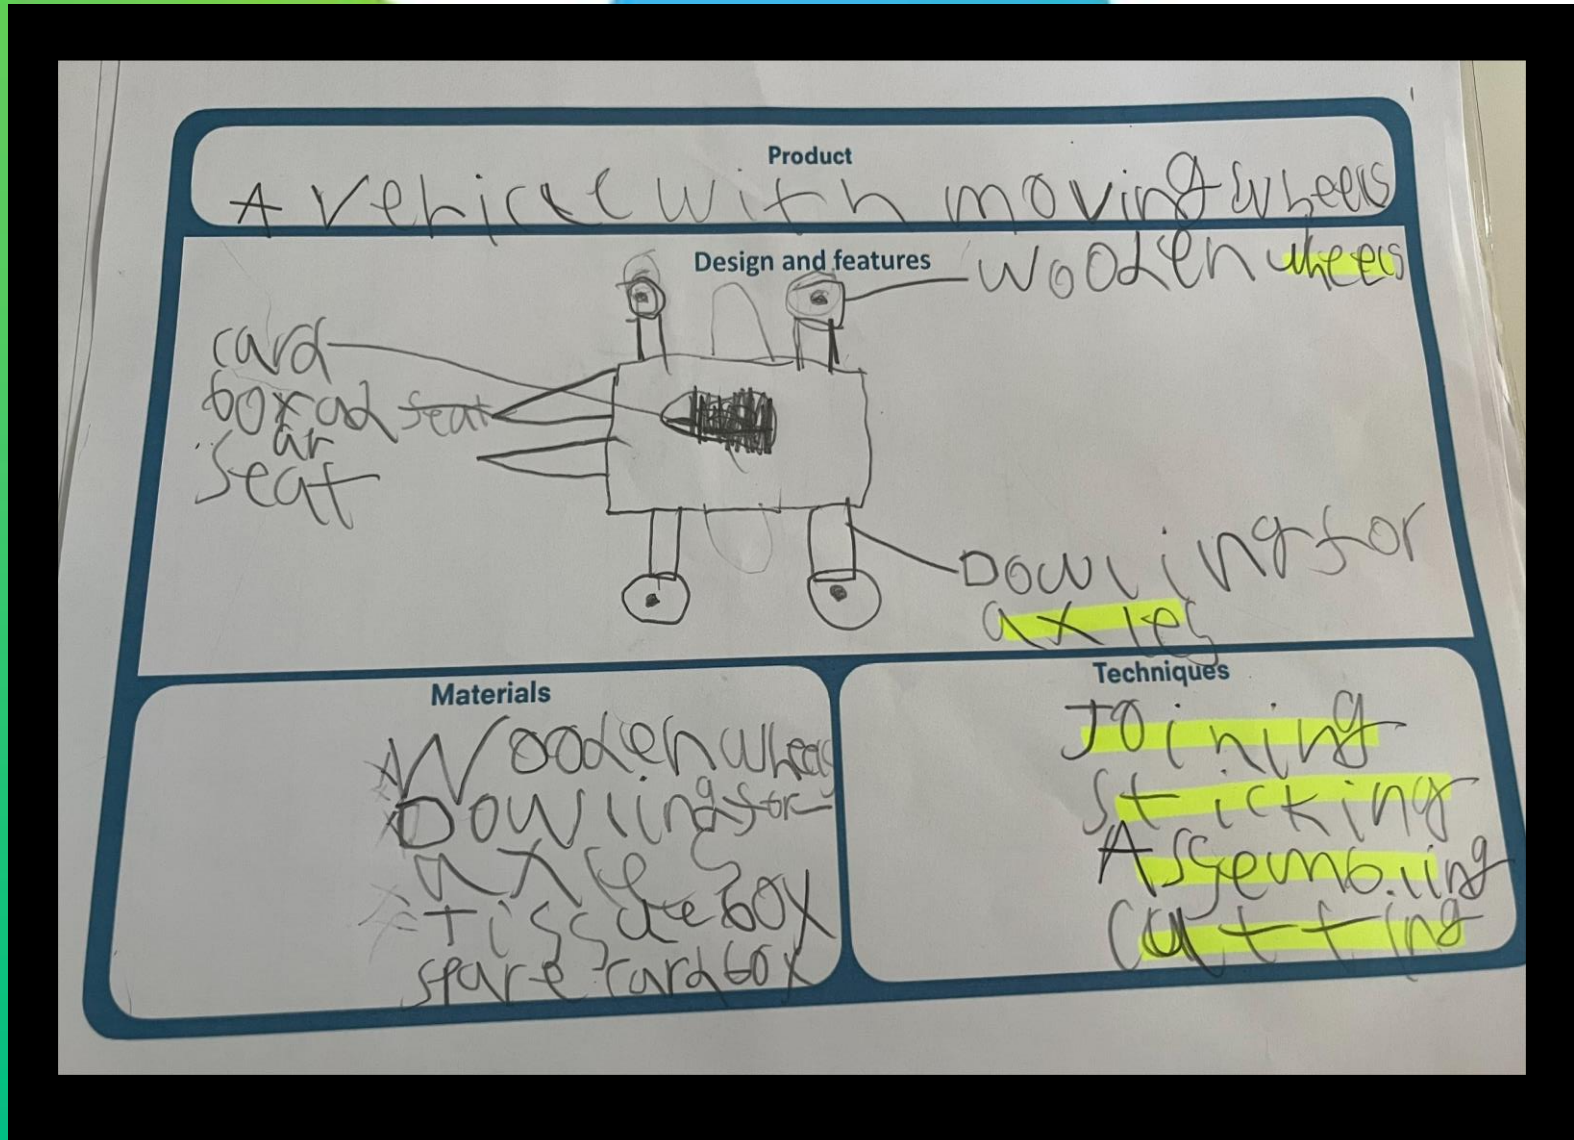 Product
A vehicle with moving wheels
Design and features
wooden wheels
card
boxad seat
ar
seat
Dowling for
axles
Materials
Wooden wheels
Dowling for
axles
tissue box
spare cardbox
Techniques
Joining
Sticking
Assembling
Cutting